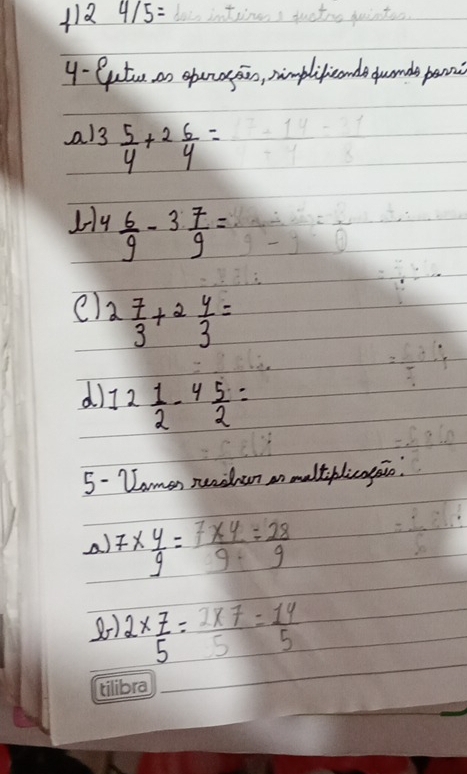 f) 2 4/5 = dois inteiros e quatro quintos
4 - Efetue as operações, simplificando quando possí
a) 3 5/4 + 2 6/4 =
b) 4 6/9 - 3 7/9 =
c) 2 7/3 + 2 4/3 =
d) 12 1/2 - 4 5/2 =
5 - Vamos resolver as multiplicações:
a) 7 x 4/9 = 7 x 4/9 = 28/9
b) 2 x 7/5 = 2 x 7/5 = 14/5
tilibra